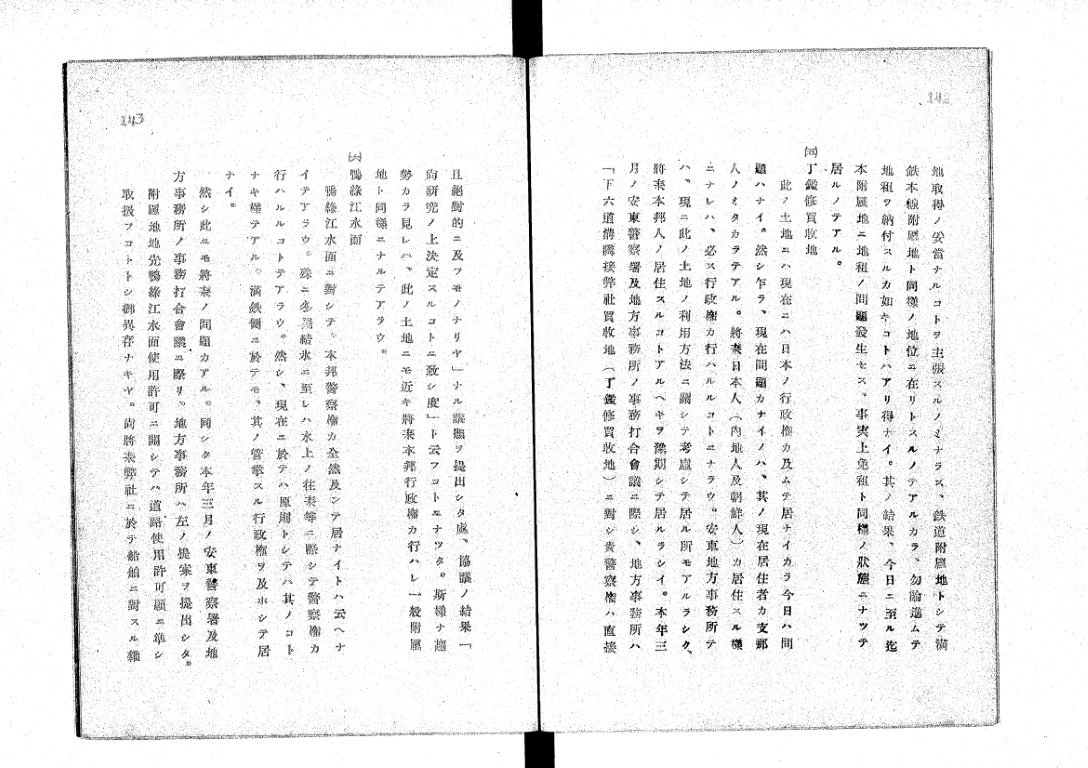 142
地取得ノ妥當ナルコトヲ主張スルノミナラス、鉄道附屬地トシテ満
鉄本線附屬地ト同様ノ地位ニ在リトスルノテアルカラ、勿論進ムテ
地租ヲ納付スルカ如キコトハアリ得ナイ。其ノ結果、今日ニ至ル迄
本附屬地ニ地租ノ問題發生セス、事実上免租ト同様ノ狀態ニナツテ
居ルノテアル。
丁鑑修買收地
此ノ土地ニハ現在ニハ日本ノ行政權カ及ムテ居ナイカラ今日ハ問
題ハナイ。然シ乍ラ、現在問題カナイノハ、其ノ現在居住者カ支那
人ノミタカラテアル。將来日本人(内地人及朝鮮人)カ居住スル樣
ニナレハ、必ス行政權カ行ハルルコトニナラウ。安東地方事務所テ
ハ、現ニ此ノ土地ノ利用方法ニ關シテ考慮シテ居ル所モアルラシク、
將来本邦人ノ居住スルコトアルヘキヲ豫期シテ居ルラシイ。本年三
月ノ安東警察署及地方事務所ノ事務打合會議ニ際シ、地方事務所ハ
「下六道溝隣接弊社買收地(丁鑑修買收地)ニ對シ貴警察權ハ直接
143
且絕對的ニ及フモノナリヤ」ナル議題ヲ提出シタ處、協議ノ結果「
尙研究ノ上決定スルコトニ致シ度」ト云フコトニナツタ。斯樣ナ趨
勢カラ見レハ、此ノ土地ニモ近キ將来本邦行政權カ行ハレ一般附屬
地ト同樣ニナルテアラウ。
鴨綠江水面
鴨綠江水面ニ對シテ、本邦警察權カ全然及ンテ居ナイトハ云ヘナ
イテアラウ。殊ニ冬期結氷ニ至レハ氷上ノ往来等ニ際シテ警察權カ
行ハルルコトテアラウ。然シ、現在ニ於テハ原則トシテハ其ノコト
ナキ樣テアル。満鉄側ニ於テモ、其ノ管掌スル行政權ヲ及ホシテ居
ナイ。
然シ此ニモ將来ノ問題カアル。同シク本年三月ノ安東警察署及地
方事務所ノ事務打合會議ニ際リ、地方事務所ハ左ノ提案ヲ提出シタ。
附屬地地先鴨綠江水面使用許可ニ關シテハ道路使用許可願ニ準シ
取扱フコトトシ御異存ナキヤ。尙將来弊社ニ於テ船舶ニ對スル雜